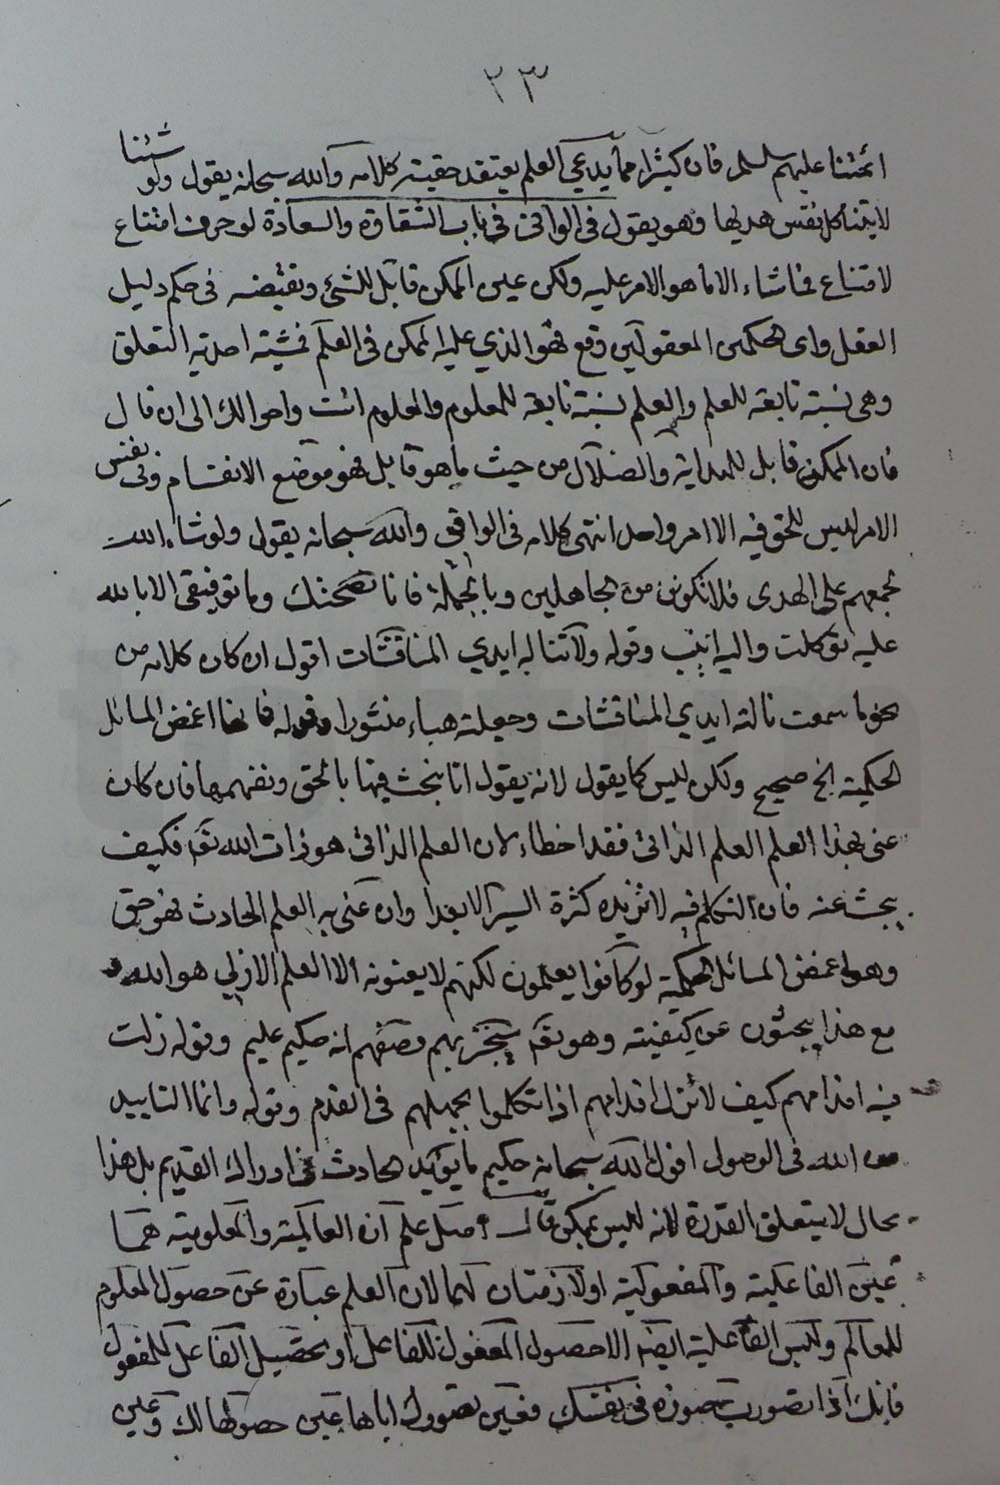 ٢٣
ائمتنا عليهم سلم فان كثيرا مما يدعي العلم يعتقد حقيته كلامه والله سبحانه يقول ولو شئنا
لاتينا كل نفس هديها وهو يقول فى الوافى فى باب الشقاوة والسعادة لو حرف امتناع
لامتناع فما شاء الا ما هو الامر عليه ولكن عين الممكن قابل للشئ ونقيضه فى حكم دليل
العقل واى الحكمين المعقولين وقع فهو الذي عليه الممكن فى العلم فمشيته احدية التعلق
وهى نسبة تابعة للعلم والعلم نسبة تابعة للمعلوم والمعلوم انت واحوالك الى ان قال
فان الممكن قابل للهداية والضلال من حيث ما هو قابل فهو موضع الانقسام وفى نفس
الامر ليس للحق فيه الا امر واحد انتهى كلامه فى الوافى والله سبحانه يقول ولو شاء الله
لجمعهم على الهدى فلا تكونن من الجاهلين وبالجملة فانا نصحتك وما توفيقى الا بالله
عليه توكلت واليه انيب وقوله ولا تناله ايدي المناقشات اقول ان كان كلامه من
نحو ما سمعت نالته ايدي المناقشات وجعلته هباء منثورا وقوله فانها اغمض المسائل
الحكمية الخ صحيح ولكن ليس كما يقول لانه يقول انا نبحث فيها بالحق ونفهمها فان كان
عنى بهذا العلم العلم الذاتى فقد اخطاء لان العلم الذاتى هو ذات الله تعه فكيف
يبحث عنه فان التكلم فيه لا تزيده كثرة السير الا بعدا وان عنى به العلم الحادث فهو حق
وهو اغمض المسائل الحكمية لو كانوا يعلمون لكنهم لا يعنونه الا العلم الازلي هو الله و
مع هذا يبحثون عن كيفيته وهو تعه سيجزيهم وصفهم انه حكيم عليم وقوله زلت
فيه اقدامهم كيف لا تزل اقدامهم اذا تكلموا بجهلهم فى القدم وقوله وانما التاييد
من الله فى الوصول اقول الله سبحانه حكيم ما يؤيد الحادث فى ادراك القديم بل هذا
محال لا يتعلق القدرة لانه ليس بممكن قال اصل علم ان العالمية والمعلومية هما
عين الفاعلية والمفعولية او لازمتان لهما لان العلم عبارة عن حصول المعلوم
للعالم وليس الفاعلية ايضا الا حصول المفعول للفاعل او تحصيل الفاعل للمفعول
فانك اذا تصورت صورة فى نفسك فعين تصورك اياها عين حصولها لك وعين